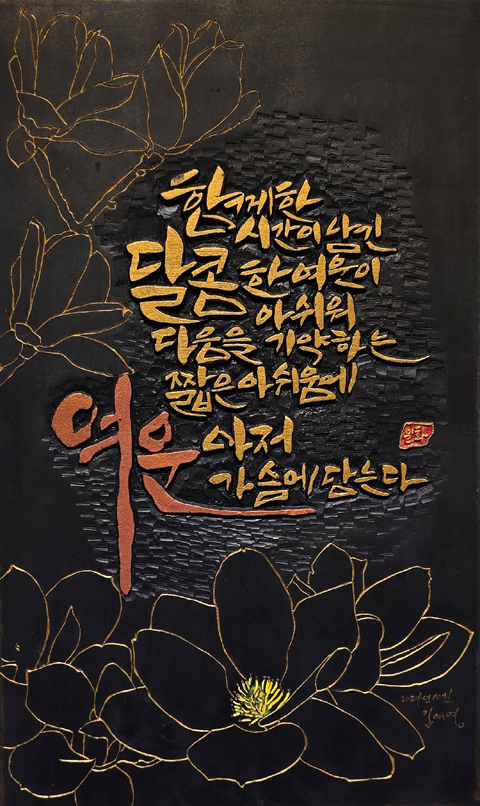 함께한
시간이 남긴
달콤한 여운이
아쉬워
다음을 기약하는
짧은 아쉬움에
여운 마저
가슴에 담는다